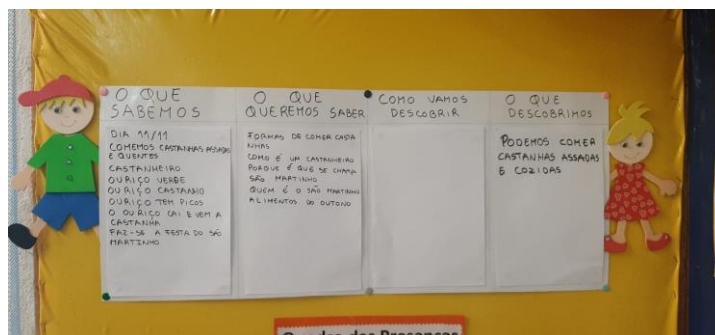 O QUE
SABEMOS
DIA 11/11
COMEMOS CASTANHAS ASSADAS
E QUENTES
CASTANHEIRO
OURIÇO VERDE
OURIÇO CASTANHO
OURIÇO TEM PICOS
O OURIÇO CAI E VEM A
CASTANHA
FAZ-SE A FESTA DO SÃO
MARTINHO
O QUE
QUEREMOS SABER
FORMAS DE COMER CASTA
NHAS
COMO É UM CASTANHEIRO
PORQUE É QUE SE CHAMA
SÃO MARTINHO
QUEM É O SÃO MARTINHO
ALIMENTOS DO OUTONO
COMO VAMOS
DESCOBRIR
O QUE
DESCOBRIMOS
PODEMOS COMER
CASTANHAS ASSADAS
E COZIDAS
Quadro das Presenças